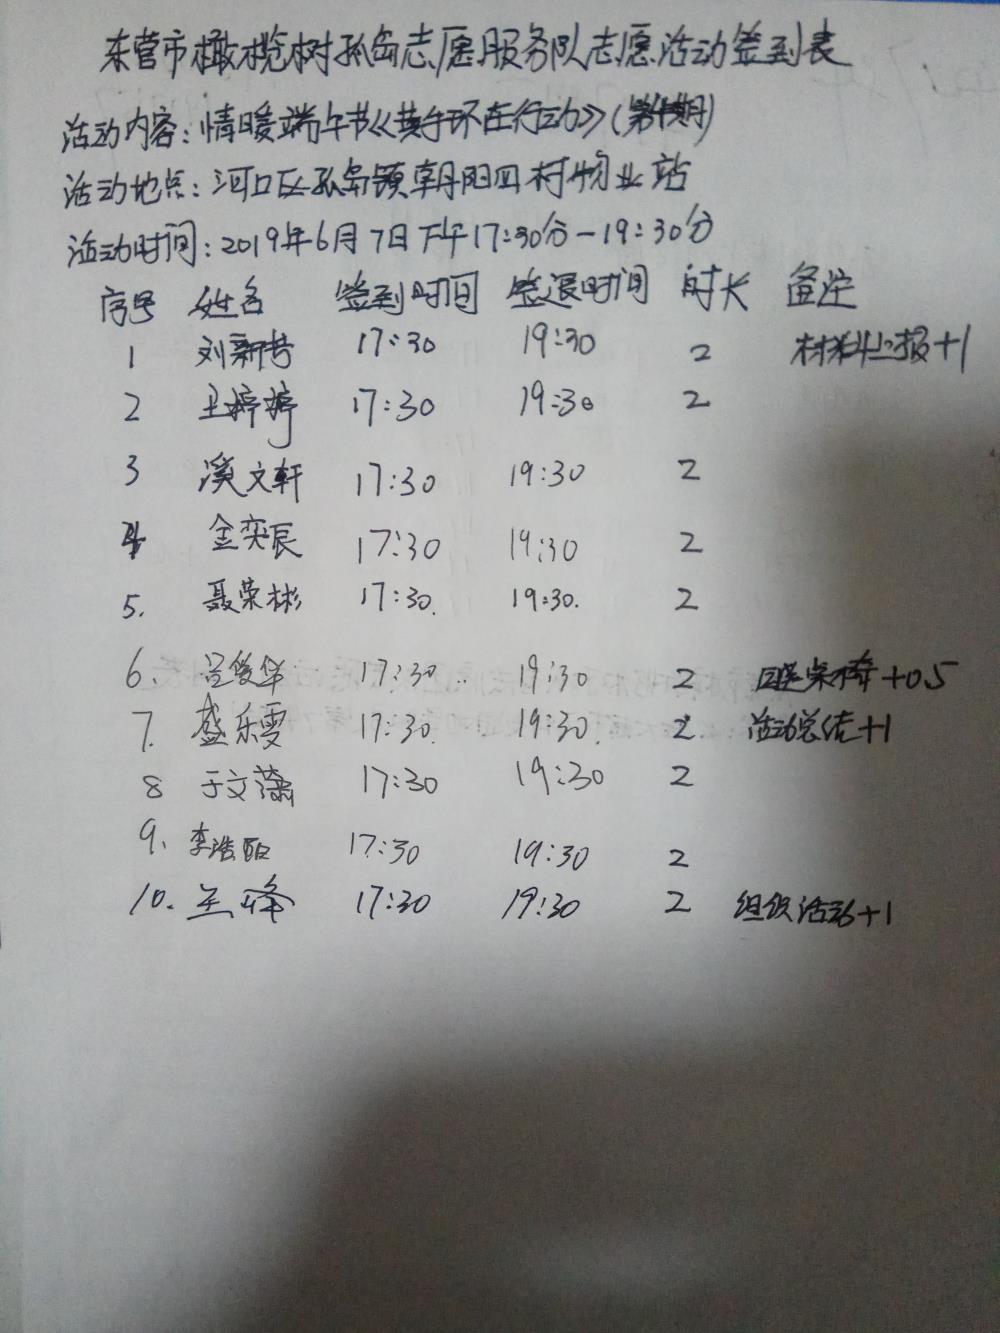 东营市橄榄树孤岛志愿服务队志愿活动签到表
活动内容：情暖端午节《黄手环在行动》(第期)
活动地点：河口区孤岛镇朝阳四村物业站
活动时间：2019年6月7日下午17:30分-19:30分
序号 姓名 签到时间 签退时间 时长 备注
1 刘新芳 17:30 19:30 2 材料上报+1
2 王婷婷 17:30 19:30 2
3 溪文轩 17:30 19:30 2
4 金奕辰 17:30 19:30 2
5. 聂荣彬 17:30. 19:30. 2
6. 吕俊华 17:30.. 19:30 2 +0.5
7. 盛乐雯 17:30. 19:30. 2 活动总结+1
8 于文潇 17:30 19:30 2
9. 李浩 17:30 19:30 2
10. 王峰 17:30 19:30 2 组织活动+1